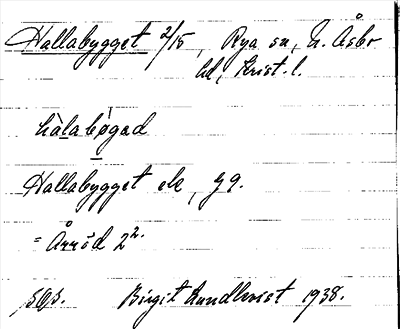 Hallabygget 2/15, Rya sn, N. Åsbo
hd, Krist. l.
hàlabøgad
Hallabygget ek, g9.
= Årröd 2²·
sQs. Birgit Lundkvist 1938.